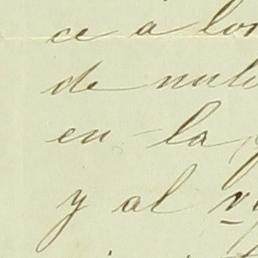 ce a los
de nul
en la
y al